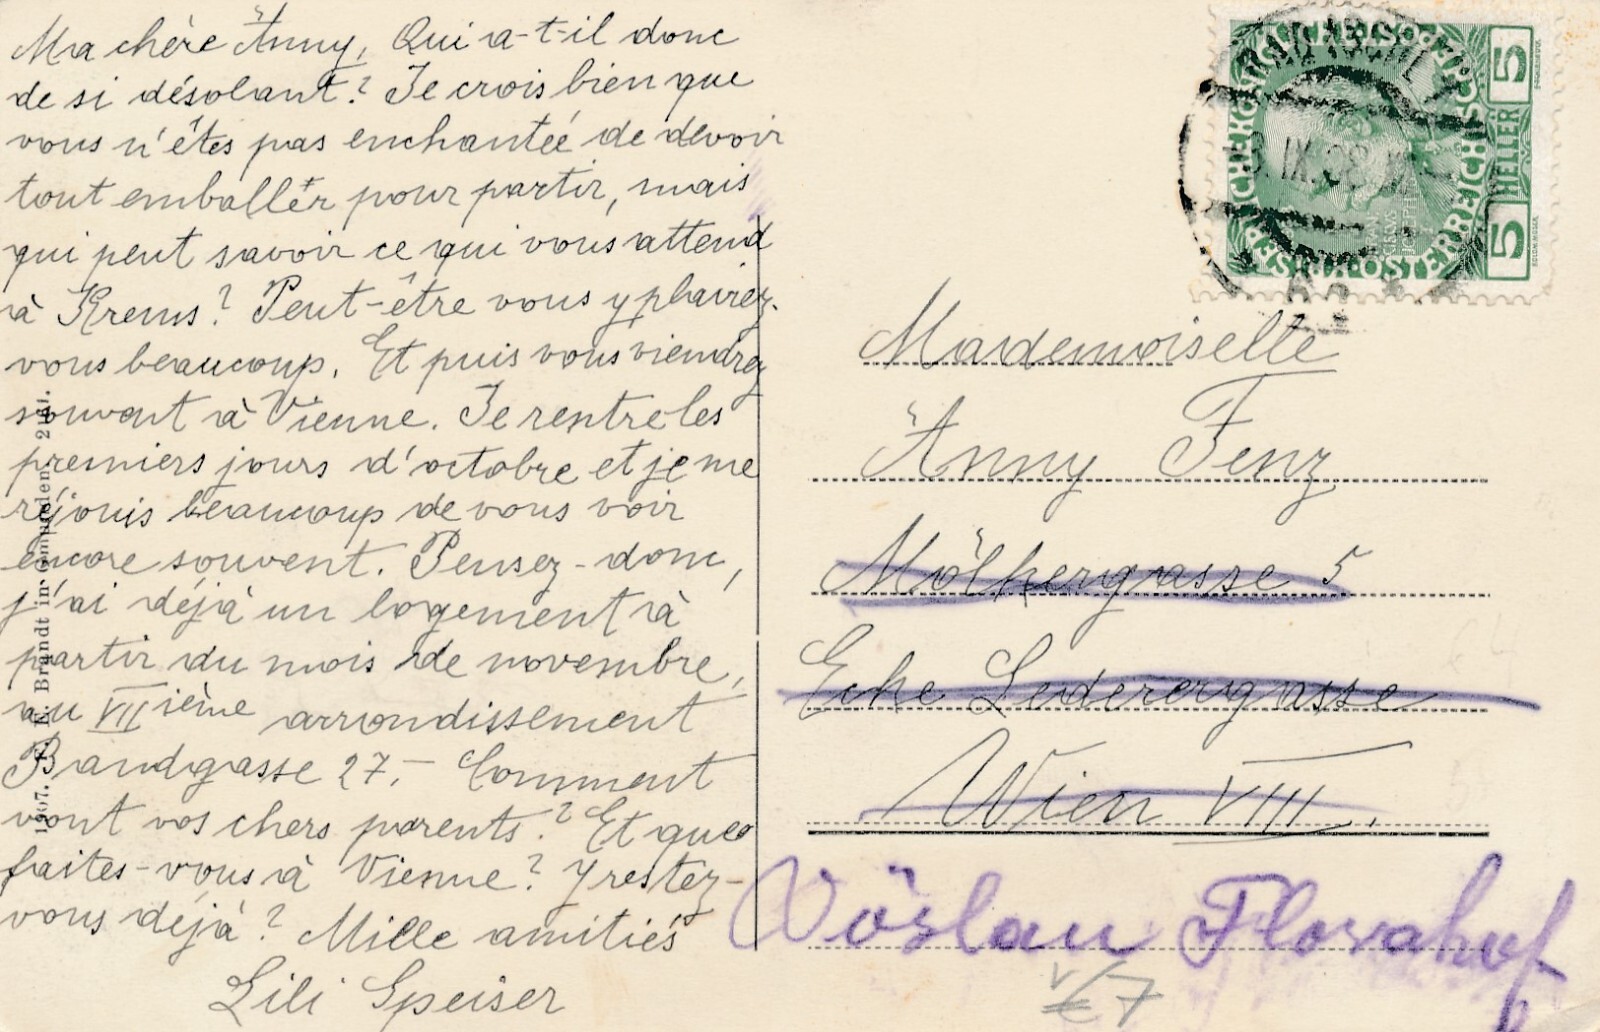 Ma chère Änny, Qui a-t-il donc
de si désolant? Je crois bien que
vous n'êtes pas enchantée de devoir
tout emballer pour partir, mais
qui peut savoir ce qui vous attend
à Krems? Peut-être vous y plairez-
vous beaucoup. Et puis vous viendrez
souvent à Vienne. Je rentre les
premiers jours d'octobre et je me
réjouis beaucoup de vous voir
encore souvent. Pensez-donc,
j'ai déjà un logement à
partir du mois de novembre,
au VIIième arrondissement
Bandgasse 27.- Comment
vont vos chers parents? Et que
faites-vous à Vienne? Y restez-
vous déjà? Mille amitiés
Lili Speiser
1907. F. E. Brandt in Gmunden.
5 HELLER 5
KAISERL. KÖNIGL. ÖSTERREICHISCHE POST
FRAN CISKVS IOSEPH I
IX. 08
Mademoiselle
Änny Fenz
Mölkergasse 5
Ecke Lederergasse
Wien VIII.
Vöslau Florahof